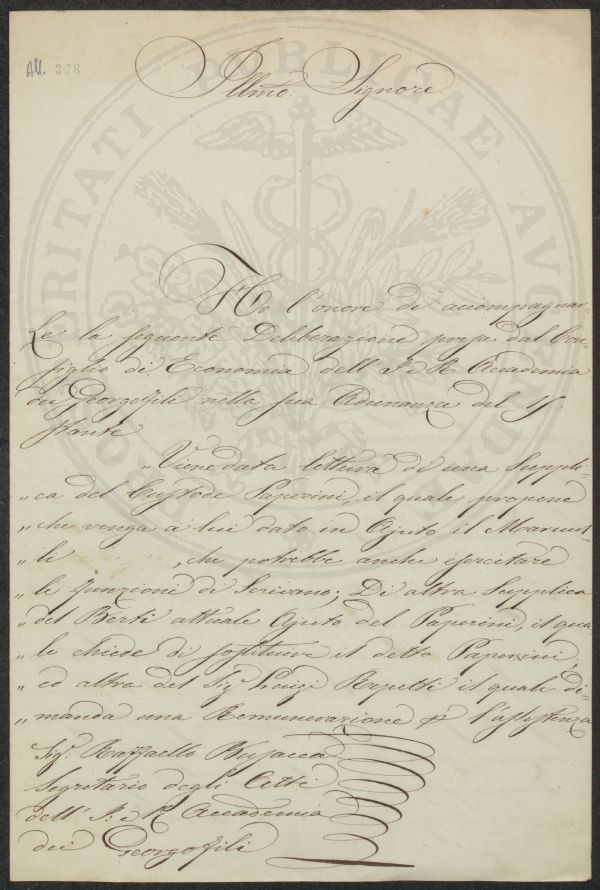 All. 368
Illmo: Signore
Ho l'onore di accompagnar-
Le la seguente Deliberazione presa dal Con-
siglio di Economia dell' I. e R. Accademia
dei Georgofili nella sua Adunanza del 15.
stante
„Viene data lettura di una Suppli-
„ca del Custode Paperini, il quale propone
„che venga a lui dato in Ajuto il
„li , che potrebbe anche esercitare
„le funzioni di Scrivano; Di altra Supplica
„del Berti attuale Ajuto del Paperini, il qua
„le chiede di sostituire il detto Paperini;
„ed altra del Sigr. Luigi Repetti il quale di-
„manda una Remunerazione p l'assistenza
Sigr. Raffaello Busacca
Segretario degli Atti
dell' I. e R. Accademia
dei Georgofili
PROSPERITATI PUBLICAE AUGENDAE